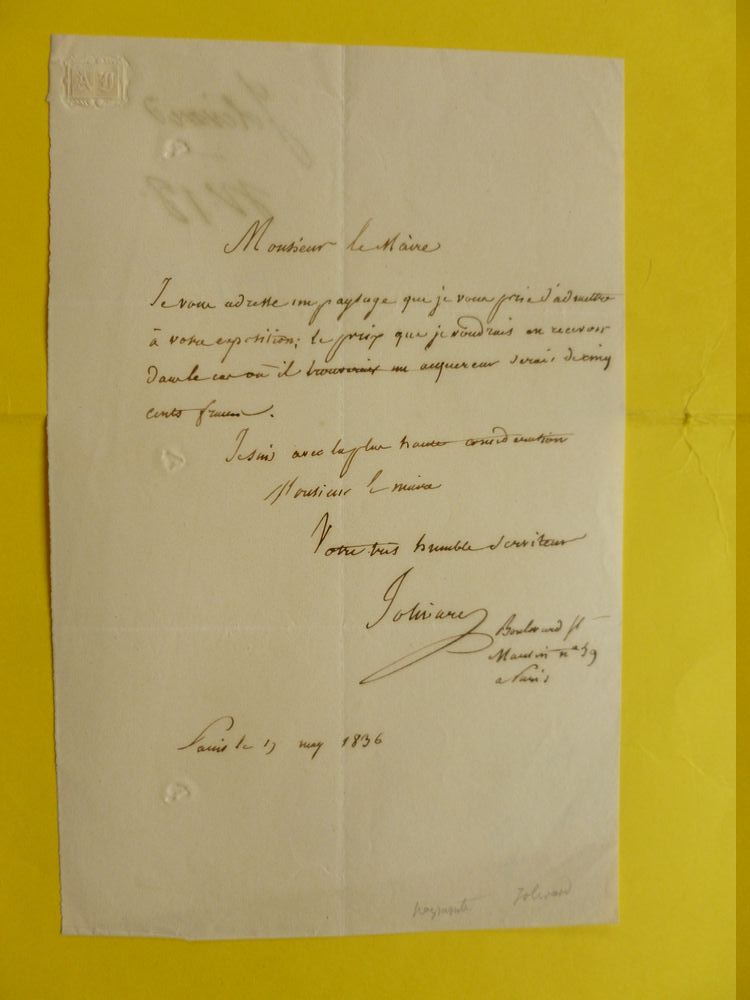 Monsieur le Maire
Je vous adresse un paysage que je vous prie d'admettre
à votre exposition; le prix que je voudrais en recevoir
dans le cas où il trouverait un acquereur serais de cinq
cents francs.
Je suis avec la plus haute consideration
Monsieur le maire
Votre tres humble serviteur
Jolivard
Boulevard St
Martin n° 59
a Paris
Paris le may 1836
Jolivard